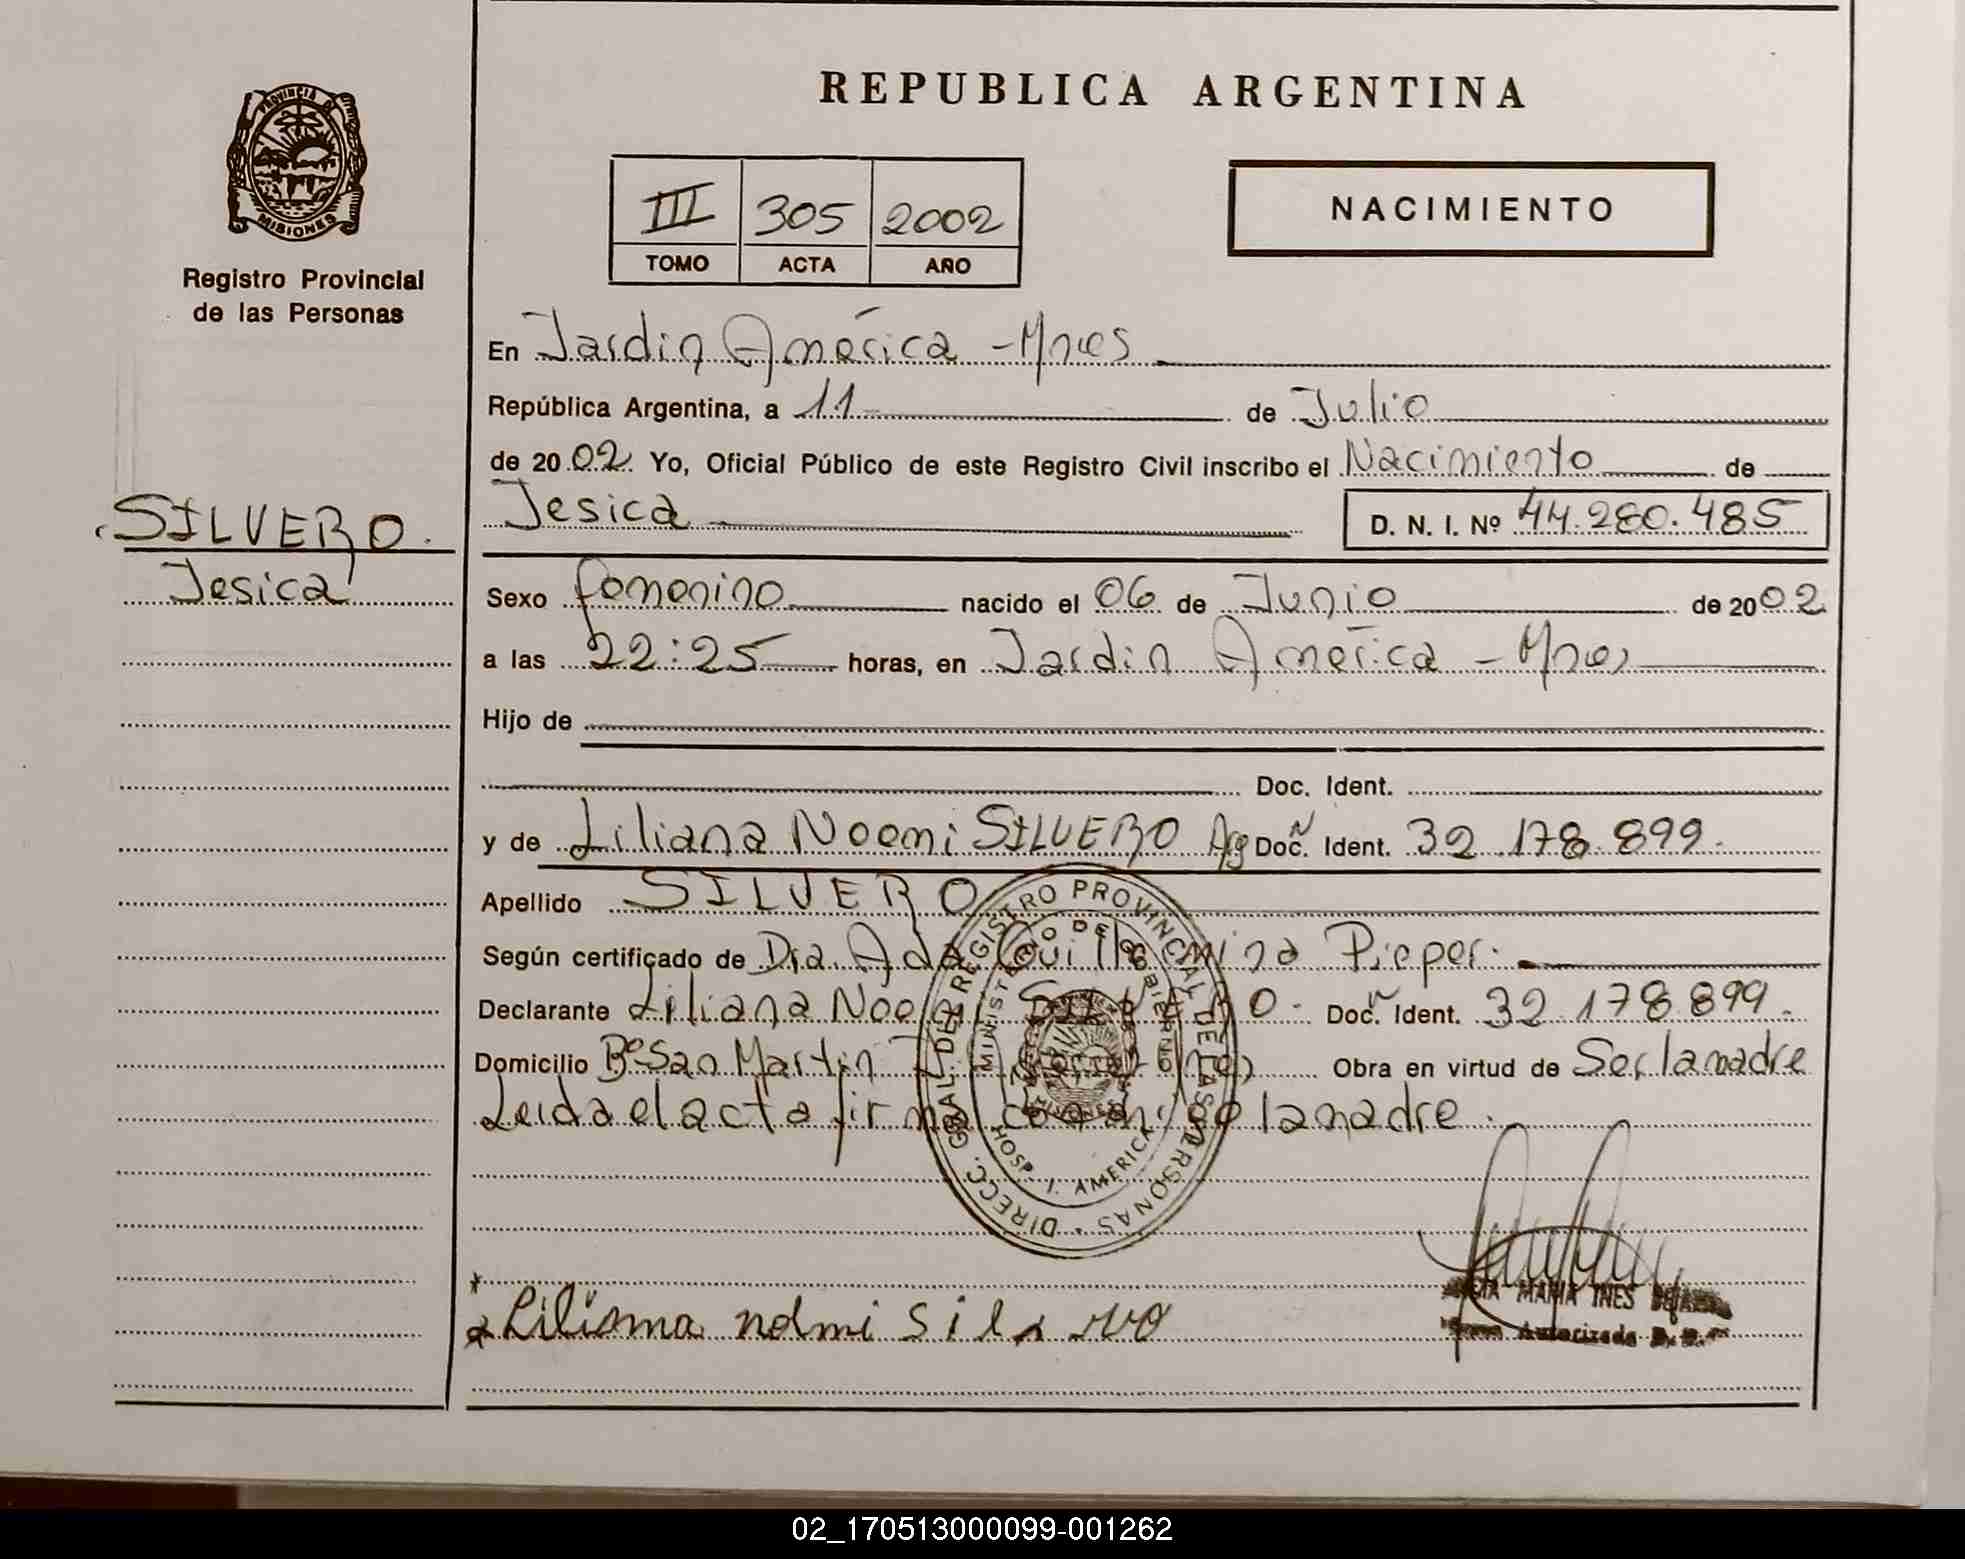 REPUBLICA ARGENTINA
PROVINCIA DE
MISIONES
Registro Provincial
de las Personas
III 305 2002
TOMO ACTA AÑO
NACIMIENTO
En Jardin América - Mnes
República Argentina, a 11 de Julio
de 2002 Yo, Oficial Público de este Registro Civil inscribo el Nacimiento de
Jesica D. N. I. Nº 44.280.485
SILVERO
Jesica
Sexo femenino nacido el 06 de Junio de 2002
a las 22:25 horas, en Jardin América - Mnes
Hijo de
Doc. Ident.
y de Liliana Noemi SILVERO Arg Doc. Ident. 32.178.899.
Apellido SILVERO
Según certificado de Dra. Ada Guillermina Pieper.
Declarante Liliana Noemi SILVERO. Doc. Ident. 32.178.899.
Domicilio Bº San Martin Obra en virtud de Ser la madre
Leida el acta firma conmigo la madre.
DIRECC. GRAL. DEL REGISTRO PROVINCIAL DE LAS PERSONAS
MINISTERIO DE GOBIERNO
HOSP. J. AMERICA
MARIA INES
Autorizada
02_170513000099-001262